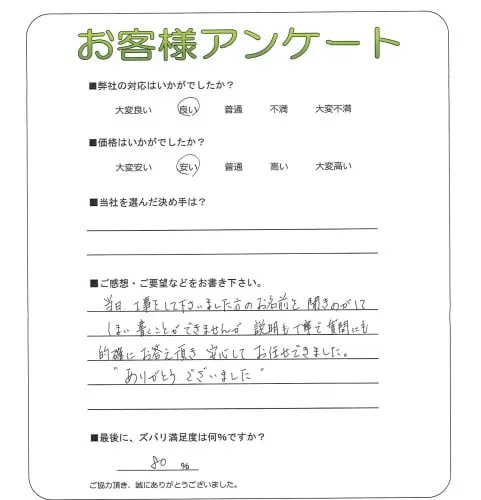 お客様アンケート
■弊社の対応はいかがでしたか?
大変良い 良い 普通 不満 大変不満
■価格はいかがでしたか?
大変安い 安い 普通 高い 大変高い
■当社を選んだ決め手は?
■ご感想・ご要望などをお書き下さい。
当日、工事をして下さいました方のお名前を聞きのがして
しまい書くことができませんが説明も丁寧で質問にも
的確にお答え頂き安心してお任せできました。
"ありがとうございました"
■最後に、ズバリ満足度は何%ですか?
80 %
ご協力頂き、誠にありがとうございました。